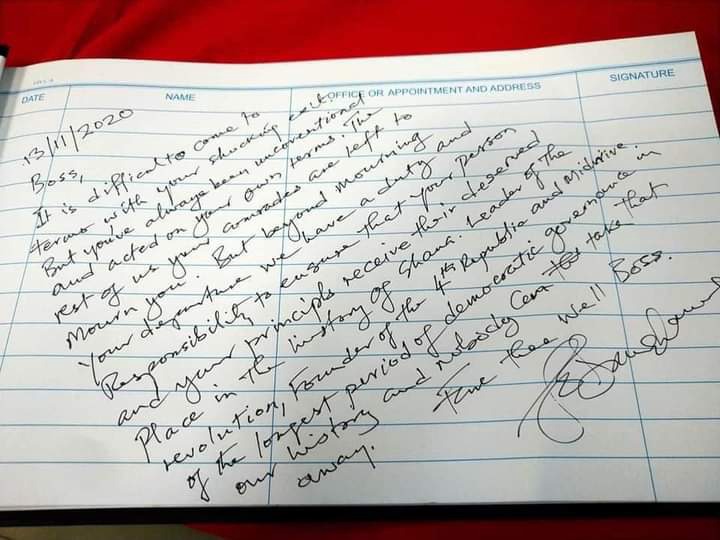 DATE NAME OFFICE OR APPOINTMENT AND ADDRESS SIGNATURE
13/11/2020
Boss,
It is difficult to come to
terms with your shocking exit.
But you've always been unconventional
and acted on your own terms. The
rest of us your comrades are left to
mourn you. But beyond mourning
your departure we have a duty and
Responsibility to ensure that your person
and your principles receive their deserved
Place in the history of Ghana. Leader of the
revolution, Founder of the 4th Republic and Midwive
of the longest period of democratic governance in
our history and nobody can take that
away. Fare thee well Boss.